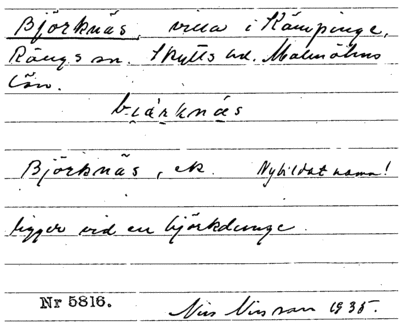 Björknäs, villa i Kämpinge,
Rängs sn. Skytts hd. Malmöhus
län.
bi̯ärknäs
Björknäs, ek. Nybildat namn!
ligger vid en björkdunge.
Nr 5816. Nils Nilsson 1935.